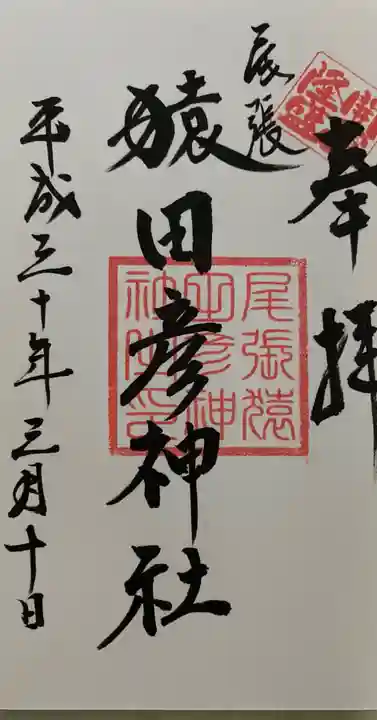 奉拝
尾張
猿田彦神社
平成三十年三月十日
尾張猿
田彦神
社